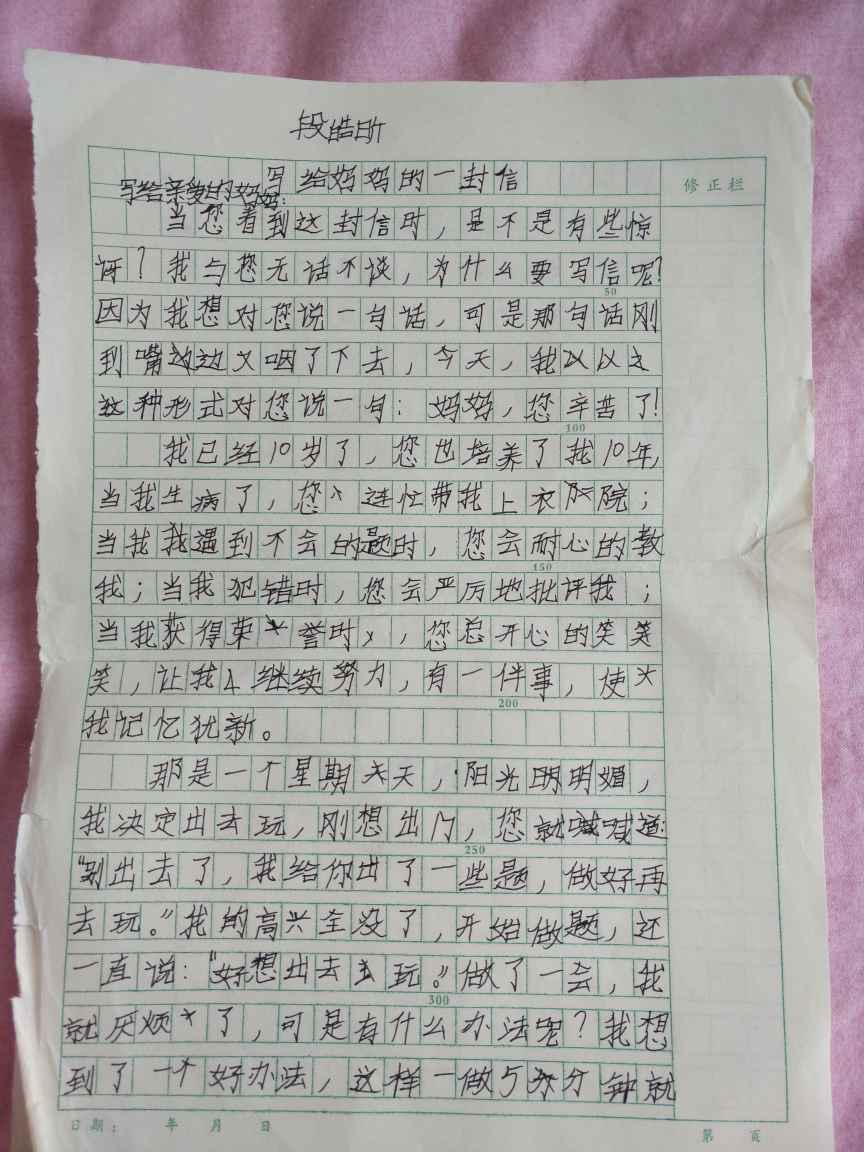 段皓昕
写给妈妈的一封信
修正栏
写给亲爱的妈妈:
当您看到这封信时,是不是有些惊
讶?我与您无话不谈,为什么要写信呢?
50
因为我想对您说一句话,可是那句话刚
到嘴边边又咽了下去,今天,我以以
这种形式对您说一句:妈妈,您辛苦了!
100
我已经10岁了,您也培养了我10年,
当我生病了,您连忙带我上衣医院;
当我我遇到不会的题时,您会耐心的教
150
我;当我犯错时,您会严厉地批评我;
当我获得荣誉时,您总开心的笑笑
笑,让我继续努力,有一件事,使
200
我记忆犹新。
那是一个星期天天,阳光明明媚,
我决定出去玩,刚想出门,您就喊喊道:
250
“别出去了,我给你出了一些题,做好再
去玩。”我的高兴全没了,开始做题,还
一直说:“好想出去去玩。”做了一会,我
300
就厌烦了,可是有什么办法呢?我想
到了一个好办法,这样一做5分钟就
日期: 年 月 日
第 页